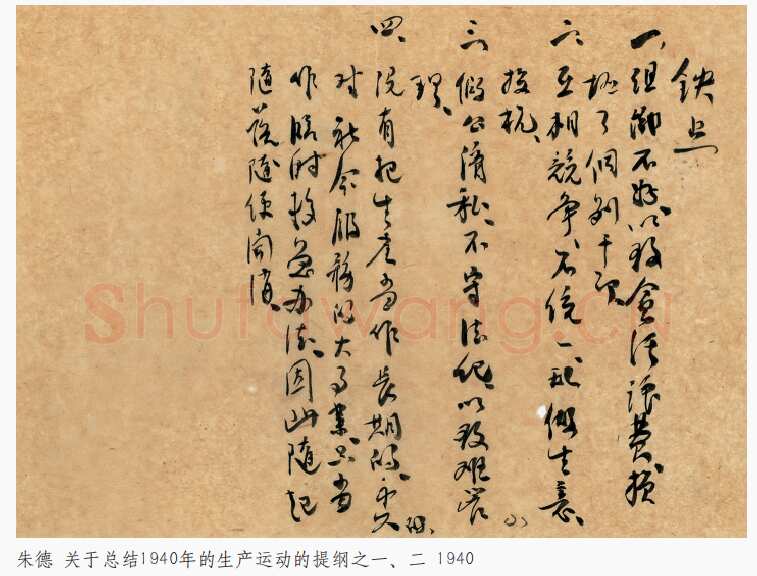 缺点
一、组织不好、以致贪污浪费、损
坏了個别干部
二、互相競争、不统一、乱做生意、
投机、
三、假公濟私、不守法纪、以致难管
理、
四、没有把生産当作長期的、永久
对社会服務的大事業、只当
作臨时救急办法、因此随起
随落随便開消、
Shufawang.CN
朱德 关于总结1940年的生产运动的提纲之一、二 1940